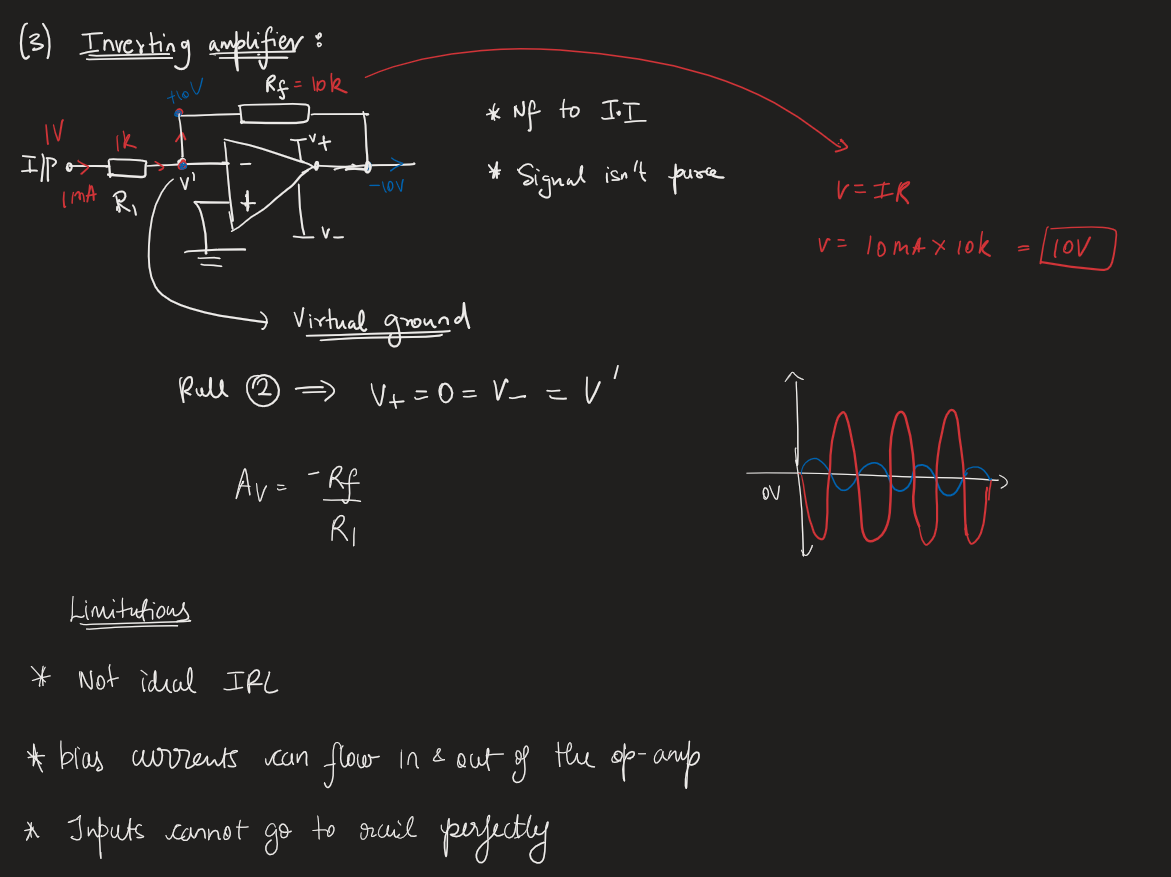 (3) Inverting amplifier :
+10V
Rf = 10k
1V
1k
I/P
1mA
R1
V'
-
+
V+
V-
-10V
* Nf to I.I
* Signal isn't pure
V = IR
V = 10mA × 10k = 10V
Virtual ground
Rule ② ⟹ V+ = 0 = V- = V'
Av = -Rf
R1
0V
Limitations
* Not ideal IRL
* bias currents can flow in & out of the op-amp
* Inputs cannot go to rail perfectly